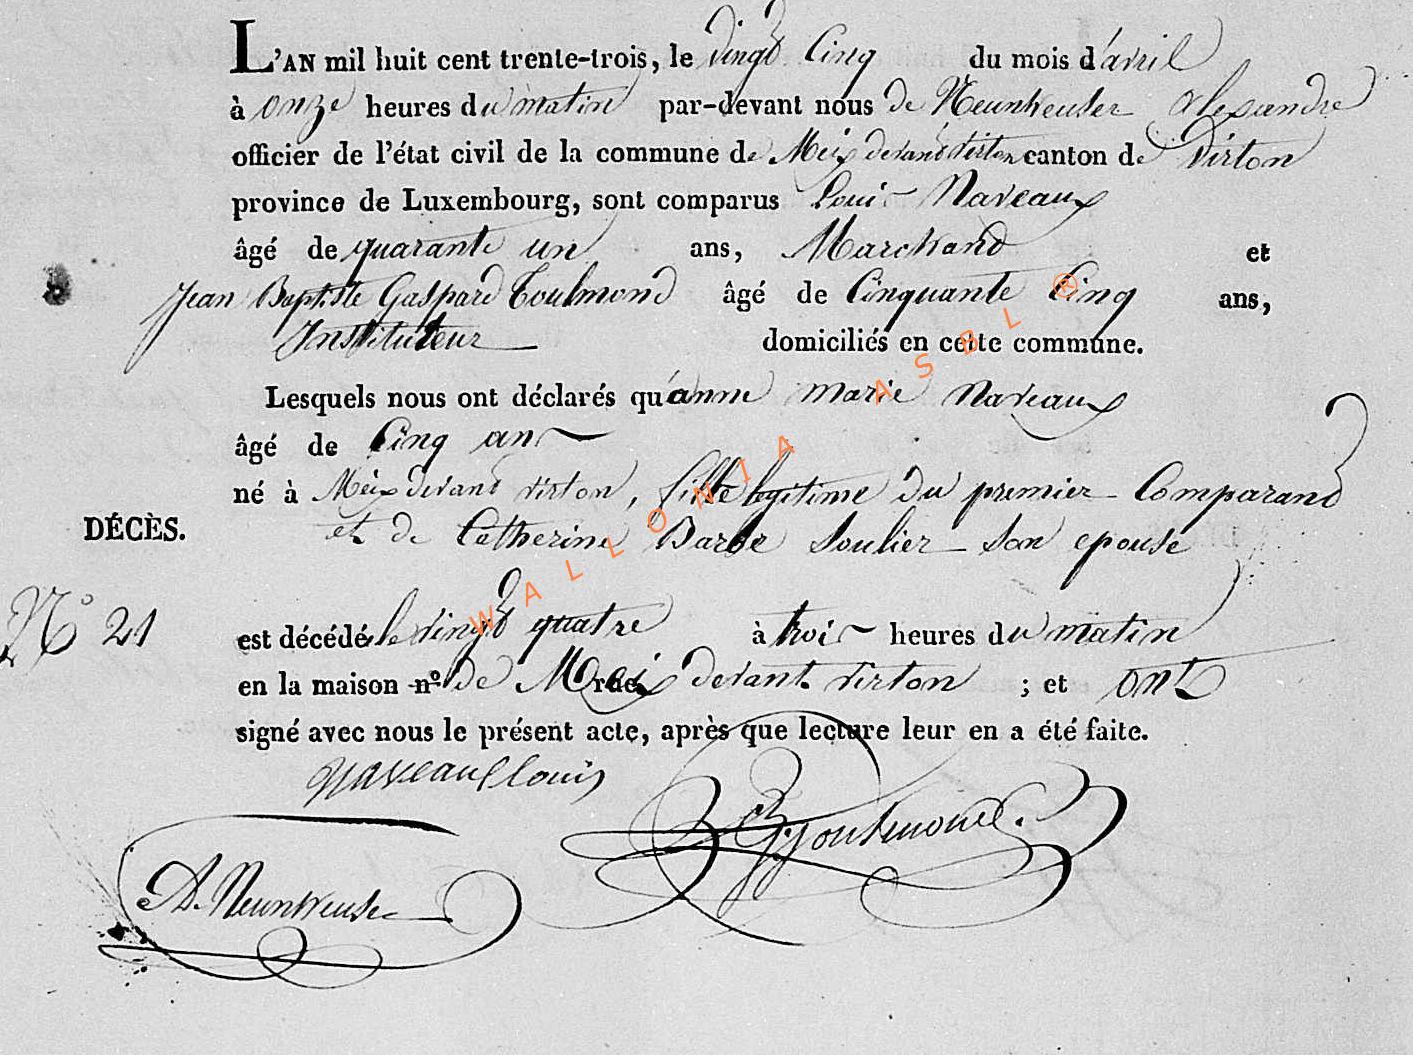 L'AN mil huit cent trente-trois, le vingt Cinq du mois d'avril
à onze heures du matin par-devant nous de Neunheuser Alexandre
officier de l'état civil de la commune de Meix devant virton canton de Virton
province de Luxembourg, sont comparus Louis Naveaux
âgé de quarante un ans, Marchand et
Jean Baptiste Gaspard Toulmond âgé de Cinquante Cinq ans,
Instituteur domiciliés en cette commune.
Lesquels nous ont déclarés qu'anne marie Naveaux
âgé de Cinq ans
né à Meix devant virton, fille legitime du premier Comparand
DÉCÈS. et de Catherine Barbe Soulier son epouse
N° 21 est décédé le vingt quatre à trois heures du matin
en la maison n° de Meix rue devant virton ; et ont
signé avec nous le présent acte, après que lecture leur en a été faite.
Naveaux louis
Toulmond.
A. Neunheuser
WALLONIA ASBL ®